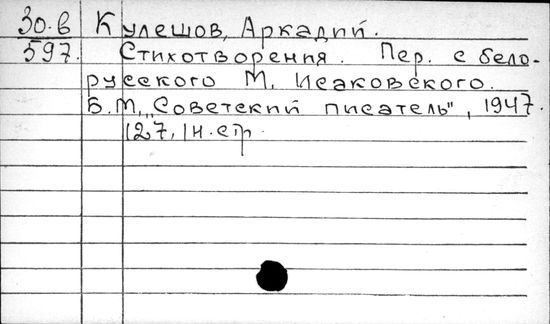 30.в Кулешов, Аркадий.
597. Стихотворения. Пер. с бело-
русского М. Исаковского.
Б.М., "Советский писатель", 1947.
127, 1 н. стр.